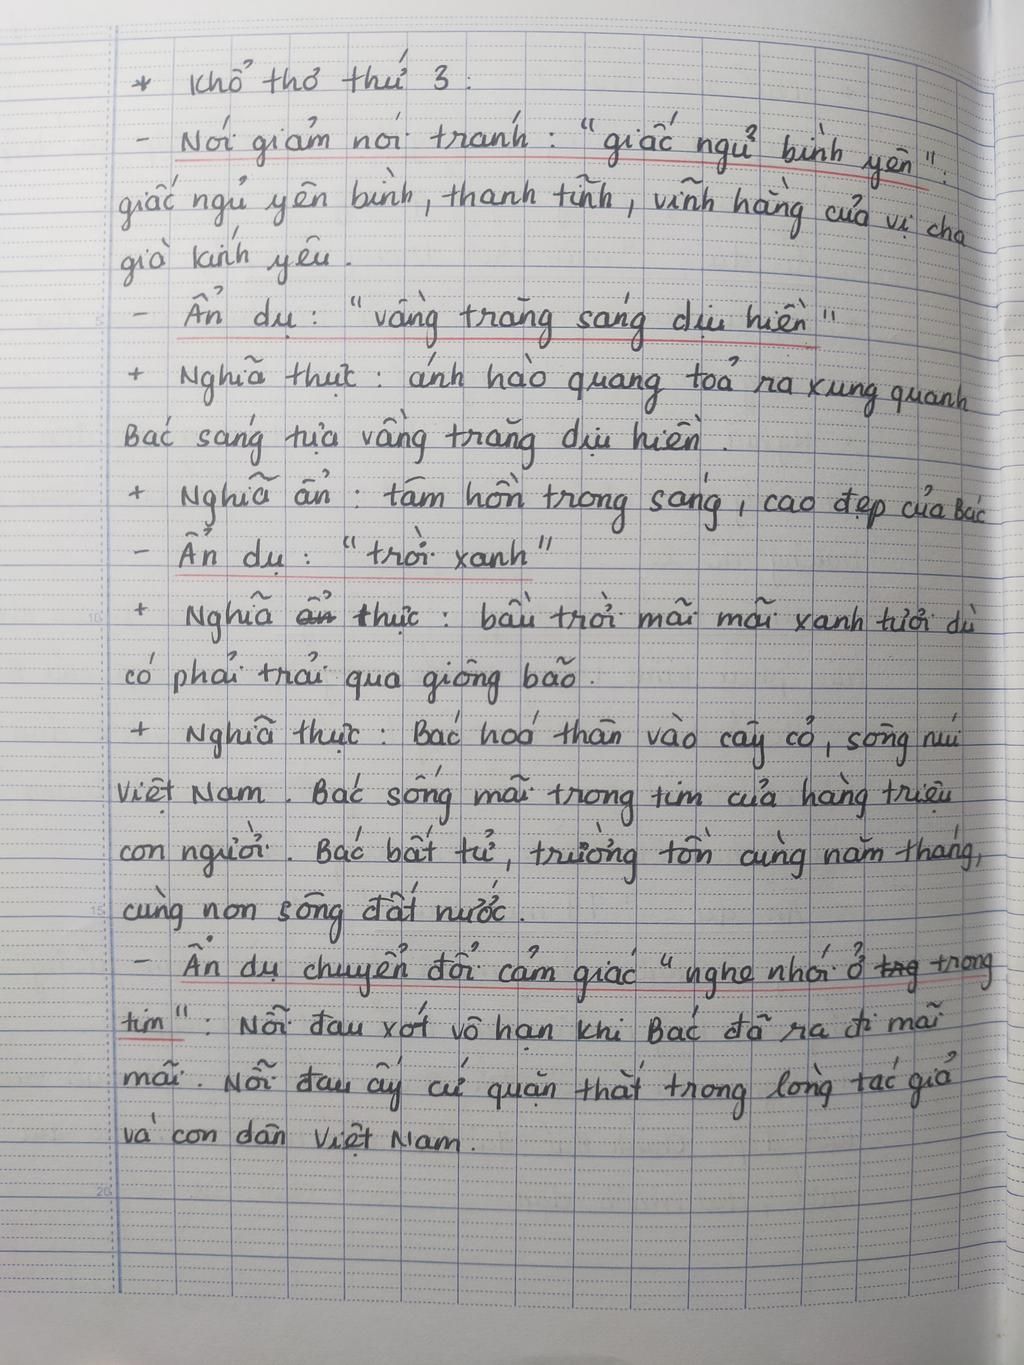 * Khổ thơ thứ 3:
- Nói giảm nói tránh: "giấc ngủ bình yên":
giấc ngủ yên bình, thanh tĩnh, vĩnh hằng của vị cha
già kính yêu.
- Ẩn dụ: "vầng trăng sáng dịu hiền"
+ Nghĩa thực: ánh hào quang toả ra xung quanh
Bác sáng tựa vầng trăng dịu hiền.
+ Nghĩa ẩn: tâm hồn trong sáng, cao đẹp của Bác
- Ẩn dụ: "trời xanh"
+ Nghĩa ẩn thực: bầu trời mãi mãi xanh tươi dù
có phải trải qua giông bão.
+ Nghĩa thực: Bác hoá thân vào cây cỏ, sông núi
Việt Nam. Bác sống mãi trong tim của hàng triệu
con người. Bác bất tử, trường tồn cùng năm tháng,
cùng non sông đất nước.
- Ẩn dụ chuyển đổi cảm giác "nghe nhói ở trg trong
tim": Nỗi đau xót vô hạn khi Bác đã ra đi mãi
mãi. Nỗi đau ấy cứ quặn thắt trong lòng tác giả
và con dân Việt Nam.